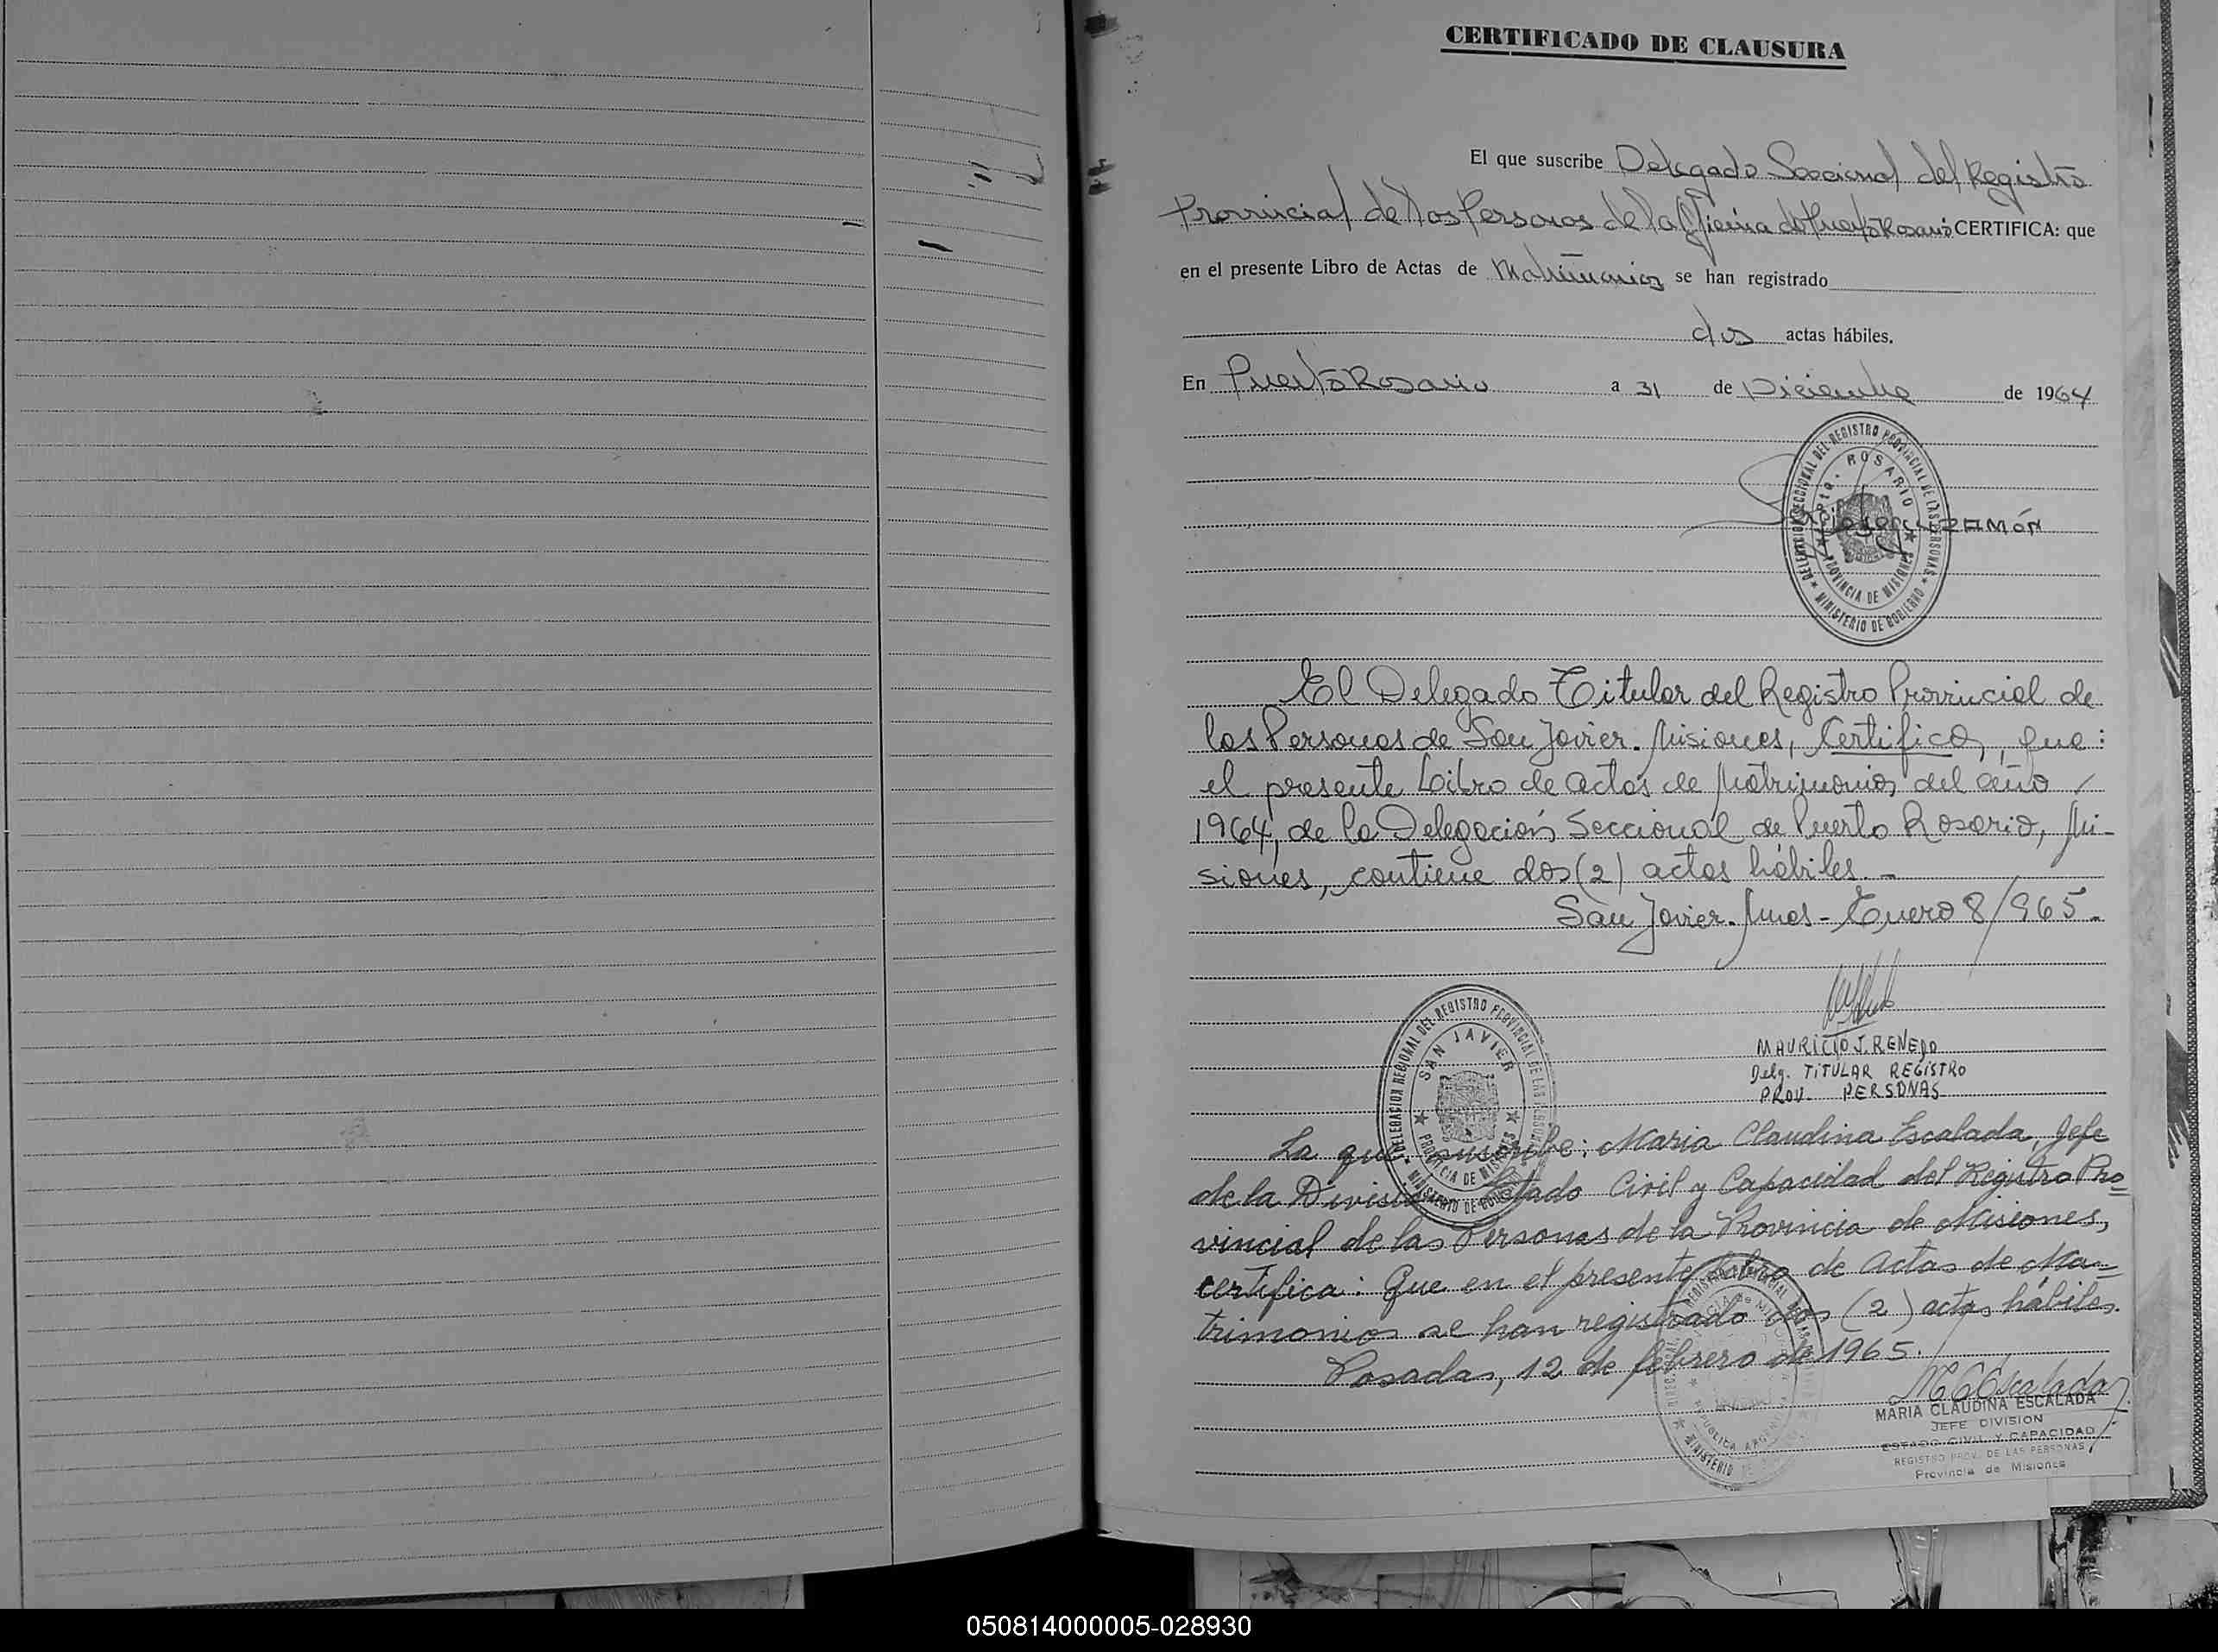 CERTIFICADO DE CLAUSURA
El que suscribe Delegado Seccional del Registro
Provincial de las Personas de la Oficina de Puerto Rosario CERTIFICA: que
en el presente Libro de Actas de Matrimonios se han registrado
dos actas hábiles.
En Puerto Rosario a 31 de Diciembre de 1964
DELEGACION SECCIONAL DEL REGISTRO PROVINCIAL DE LAS PERSONAS
Pto. ROSARIO
PROVINCIA DE MISIONES
MINISTERIO DE GOBIERNO
RAMÓN
El Delegado Titular del Registro Provincial de
las Personas de San Javier. Misiones, Certifica, que:
el presente Libro de actas de Matrimonios del año
1964, de la Delegación Seccional de Puerto Rosario, Mi-
siones, contiene dos (2) actas hábiles.-
San Javier. Mnes - Enero 8/965.-
DELEGACION REGIONAL DEL REGISTRO PROVINCIAL DE LAS PERSONAS
SAN JAVIER
PROVINCIA DE MISIONES
MINISTERIO DE GOBIERNO
MAURICIO J. RENEDO
Delg. TITULAR REGISTRO
PROV. PERSONAS
La que suscribe: Maria Claudina Escalada, Jefe
de la División Estado Civil y Capacidad del Registro Pro=
vincial de las Personas de la Provincia de Misiones,
certifica: Que en el presente Libro de Actas de Ma=
trimonios se han registrado dos (2) actas hábiles.
Posadas, 12 de febrero de 1965.
M C Escalada
MARIA CLAUDINA ESCALADA
JEFE DIVISION
ESTADO CIVIL Y CAPACIDAD
REGISTRO PROV. DE LAS PERSONAS
Provincia de Misiones
REPUBLICA ARGENTINA
MINISTERIO DE
050814000005-028930